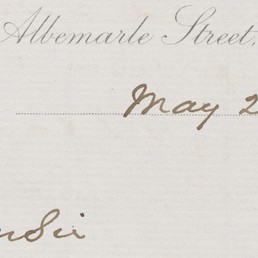 Albemarle Street,
May 2
Sir